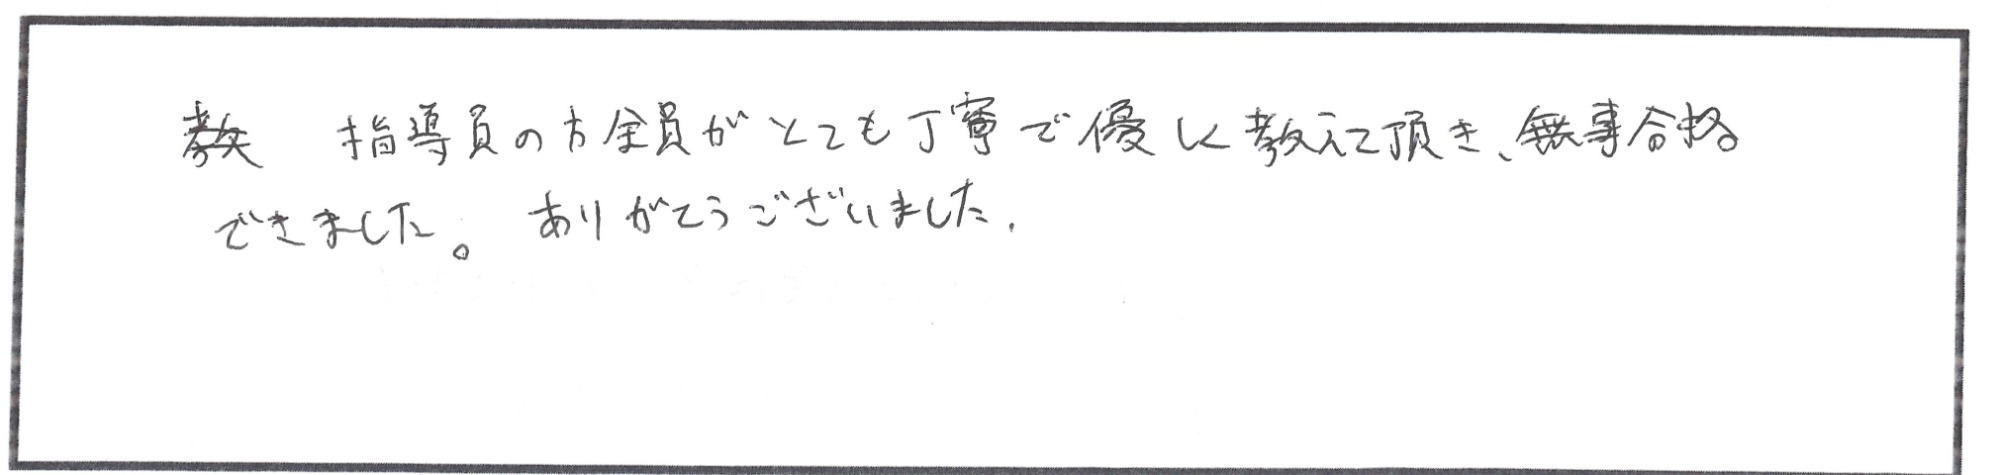 教 指導員の方全員がとても丁寧で優しく教えて頂き、無事合格
できました。 ありがとうございました.